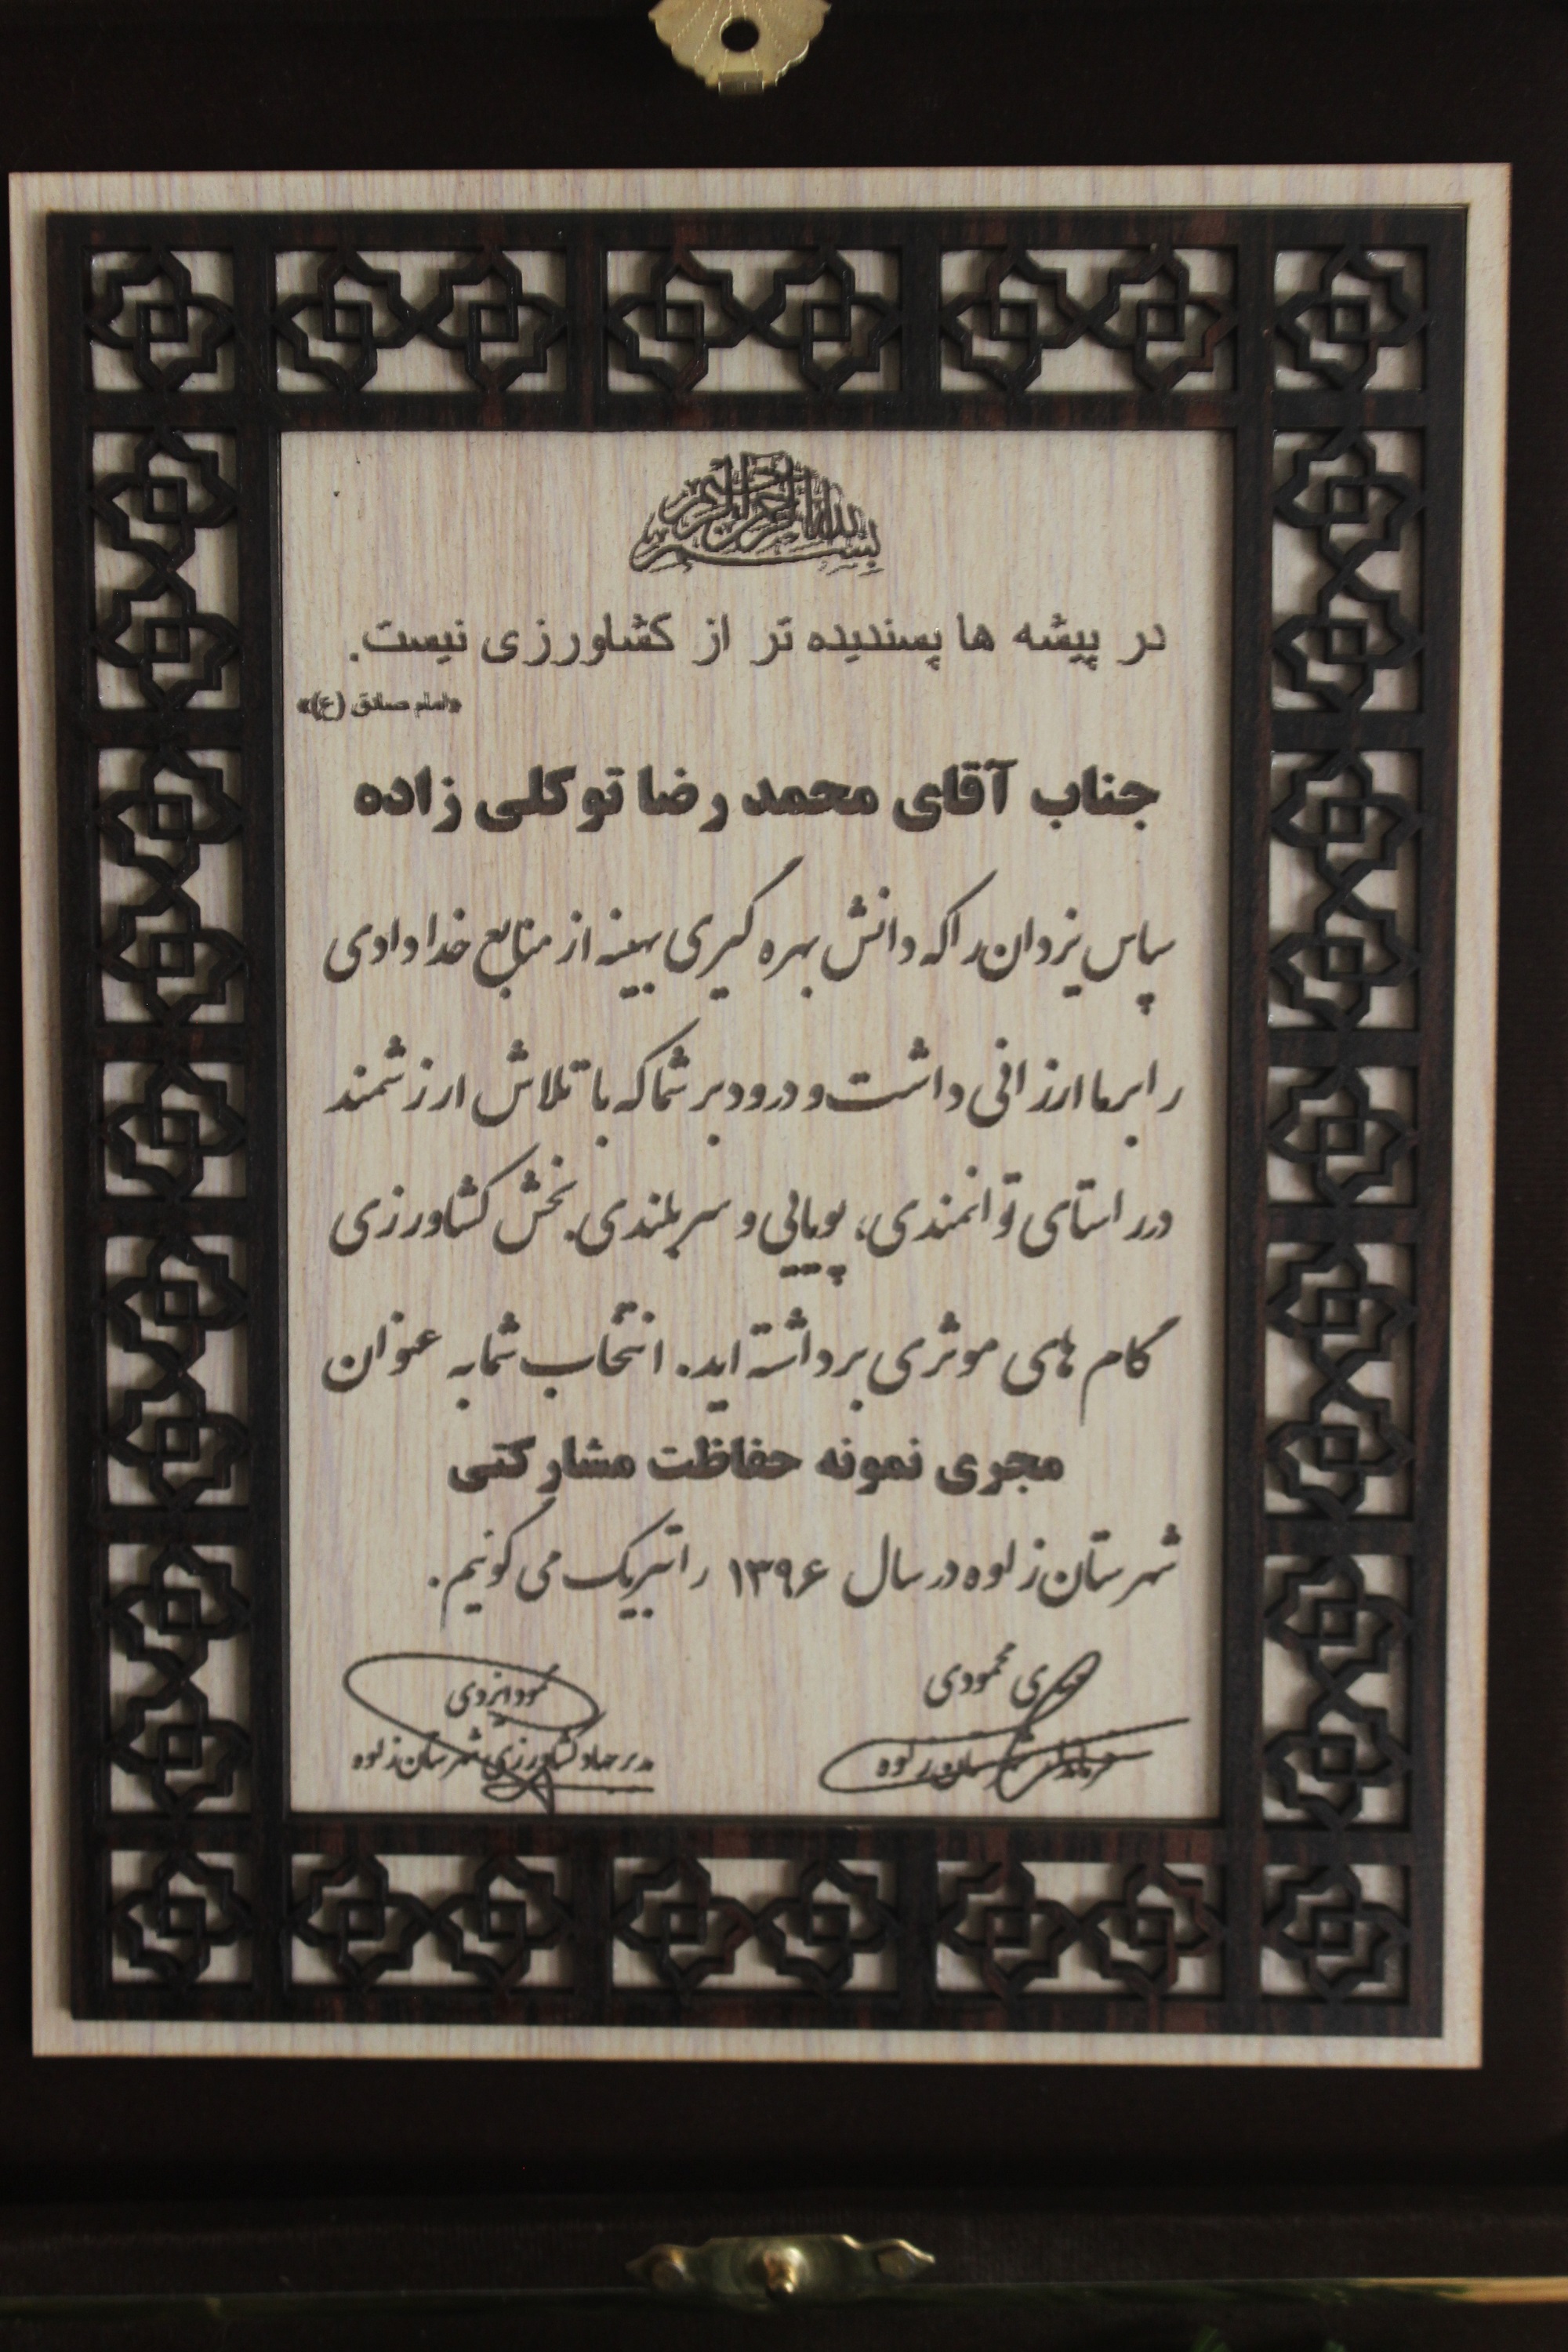 بسم الله الرحمن الرحیم
در پیشه ها پسندیده تر از کشاورزی نیست.
«امام صادق (ع)»
جناب آقای محمد رضا توکلی زاده
سپاس یزدان را که دانش بهره گیری بهینه از منابع خدادادی
را بر ما ارزانی داشت و درود بر شما که با تلاش ارزشمند
در راستای توانمندی، پویایی و سربلندی بخش کشاورزی
گام های موثری برداشته اید. انتخاب شما به عنوان
مجری نمونه حفاظت مشارکتی
شهرستان زاوه در سال ۱۳۹۶ را تبریک می گوئیم.
محمودی
فرماندار شهرستان زاوه
مدیر جهاد کشاورزی شهرستان زاوه